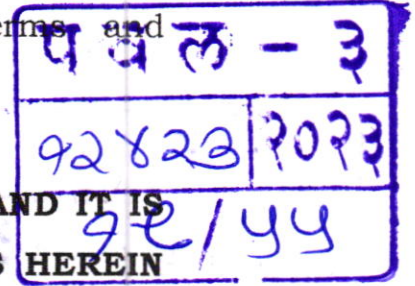 erms and
प व ल - ३
१२४२३ २०२३
AND IT IS
१९/५५
HEREIN